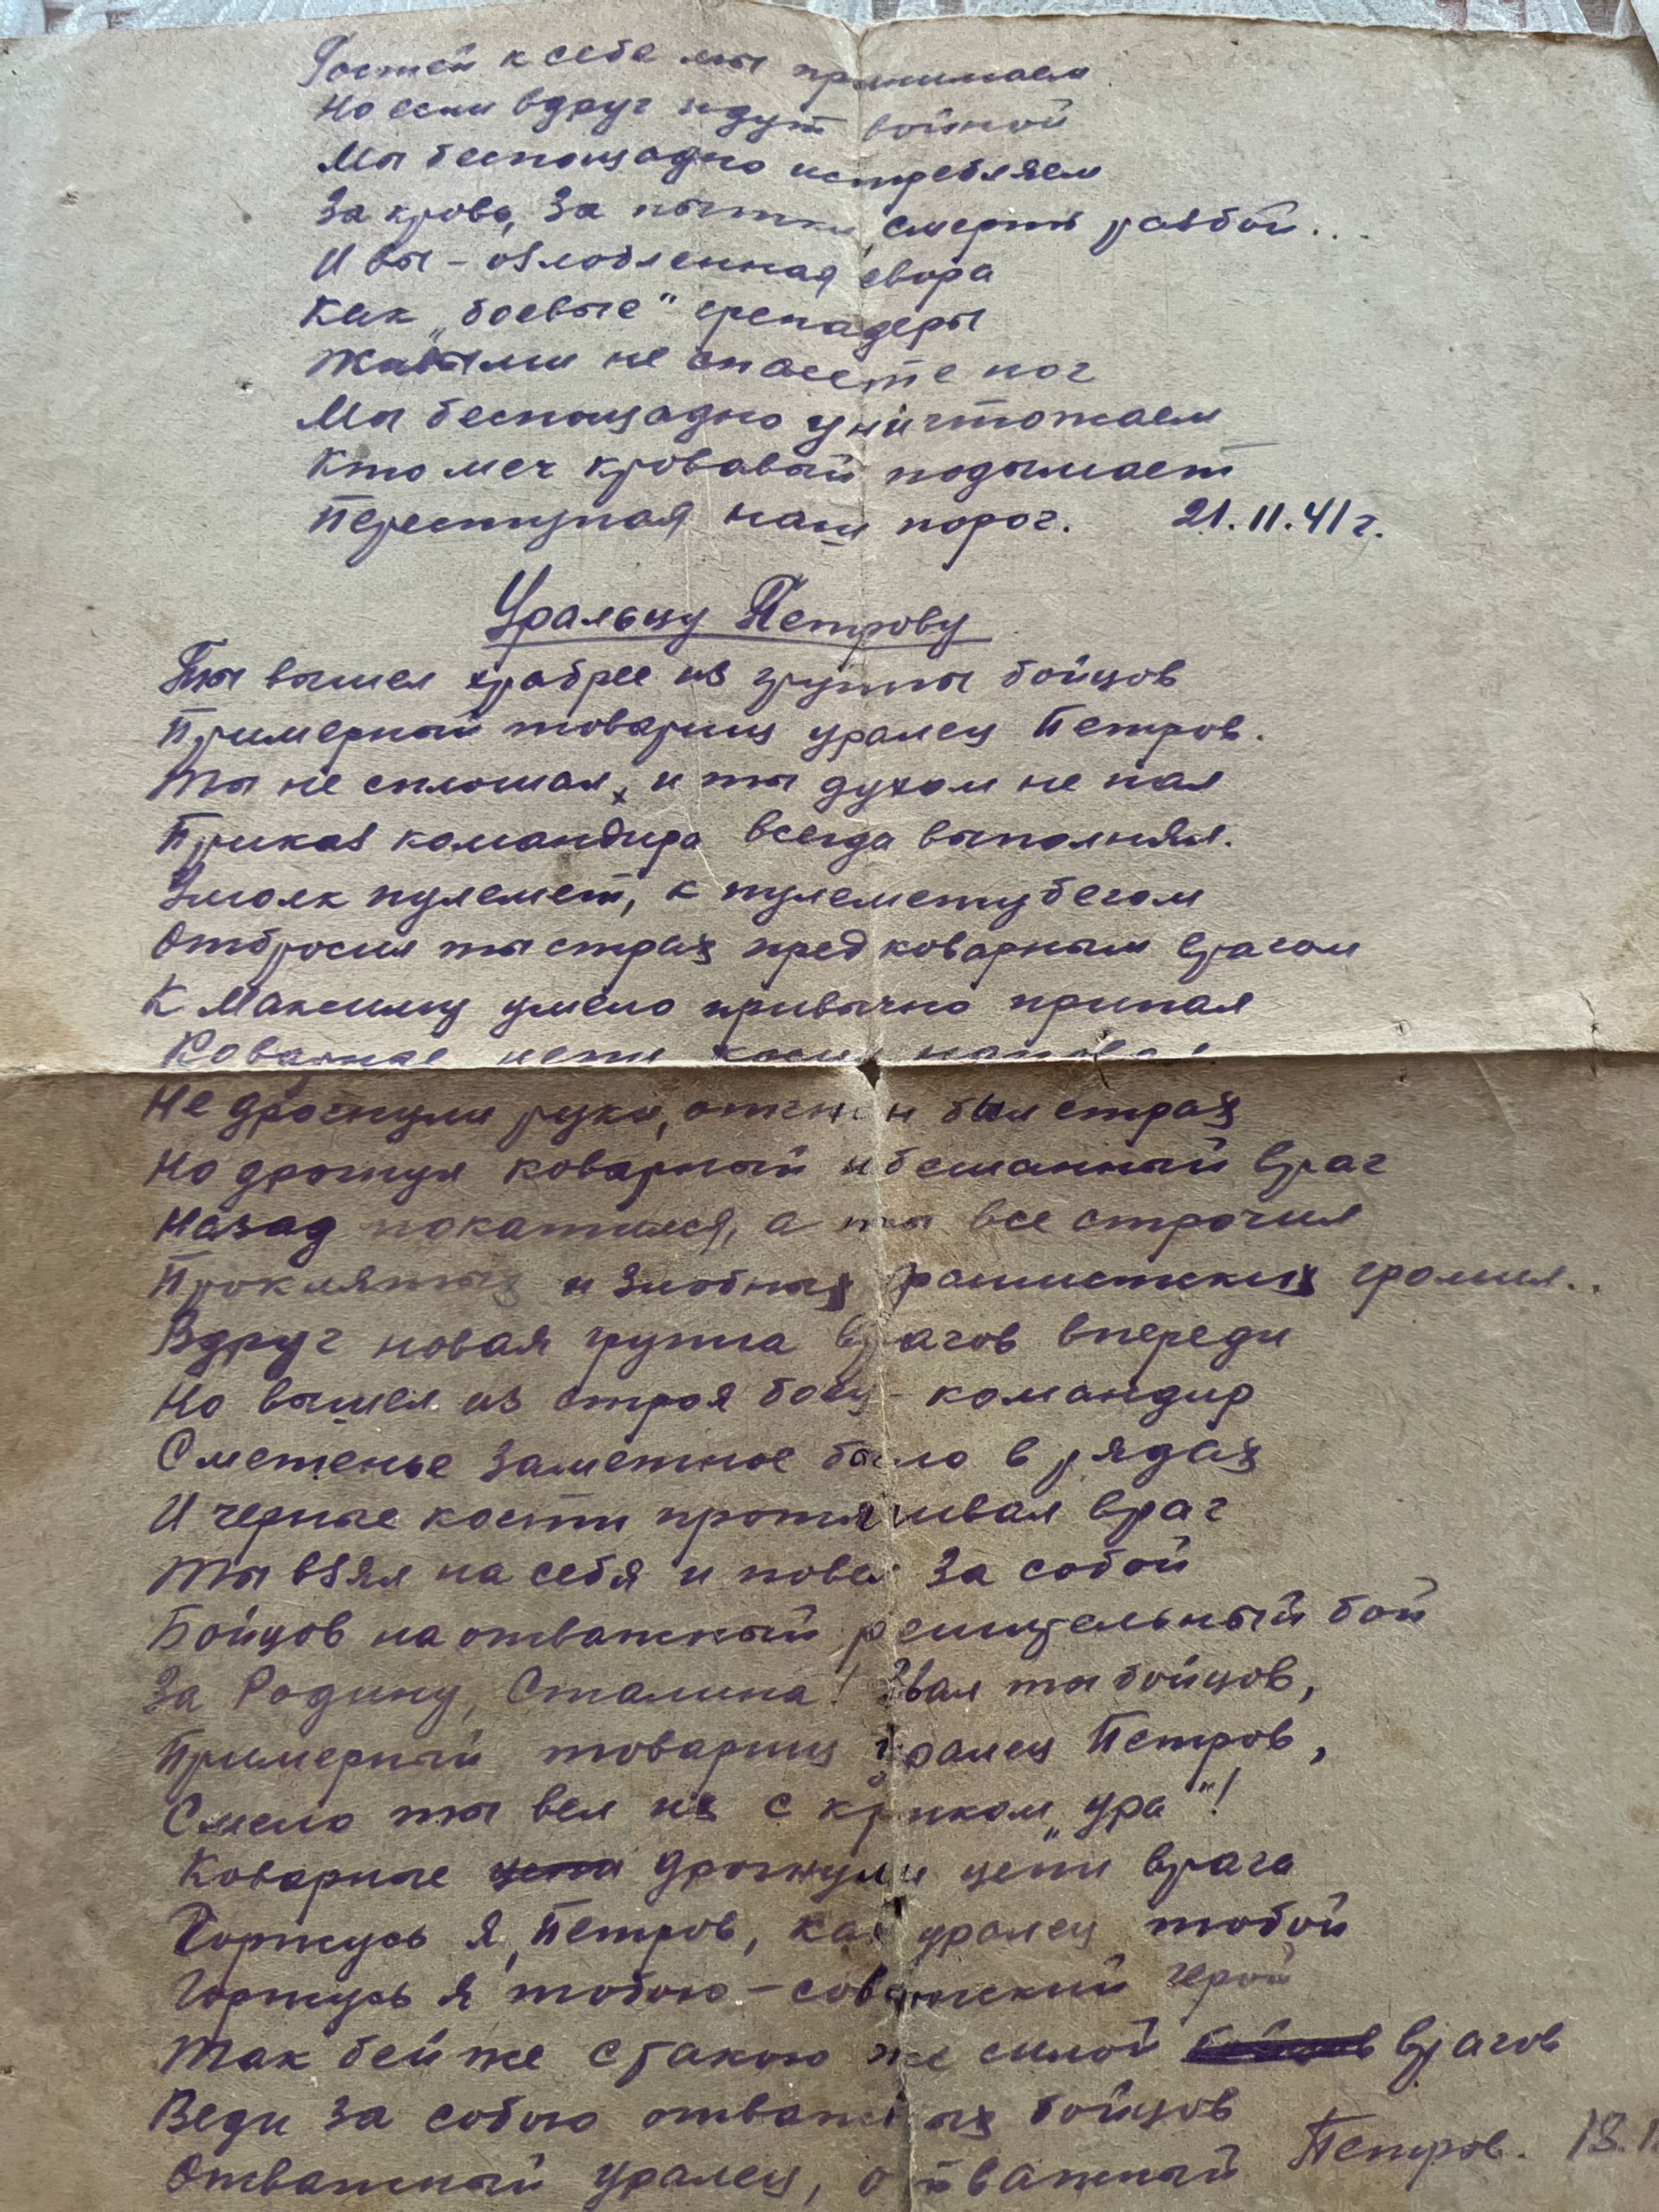 Гостей к себе мы принимаем
Но если вдруг идут войной
Мы беспощадно истребляем
За кровь, за пытки, смерть разбой...
И вы - озлобленная свора
Как „боевые" гренадеры
Живыми не спасете ног
Мы беспощадно уничтожаем
Кто меч кровавый подымает
Переступая наш порог. 21.11.41 г.
Уральцу Петрову
Ты вышел храбрее из группы бойцов
Примерный товарищ уралец Петров.
Ты не сплошал, и ты духом не пал
Приказ командира всегда выполнял.
Умолк пулемет, к пулемету бегом
Отбросил ты страх пред коварным врагом
К Максиму умело привычно припал
Коварные цепи
Не дрогнули руки, отгнан был страх
Но дрогнул коварный обманный враг
Назад покатился, а ты все строчил
Проклятых и злобных фашистских громил..
Вдруг новая группа врагов впереди
Но вышел из строя боец - командир
Сметенье заметное было в рядах
И черные кости протягивал враг
Ты взял на себя и повел за собой
Бойцов на отважный решительный бой
За Родину, Сталина! Звал ты бойцов,
Примерный товарищ уралец Петров,
Смело ты вел их с криком „ура"!
Коварные дрогнули цепи врага
Горжусь я, Петров, как уралец тобой
Горжусь я тобою - советский герой
Так бей же с такою же силой врагов
Веди за собою отважных бойцов
Отважный уралец, отважный Петров. 18.1